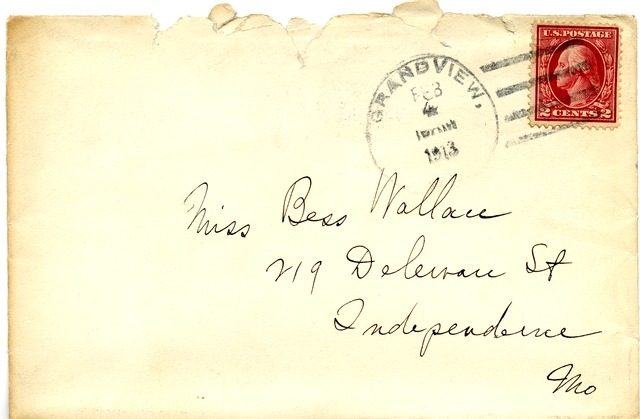 U.S. POSTAGE
2 CENTS 2
GRANDVIEW,
FEB
4
1913
Miss Bess Wallace
219 Delewar St
Independence
Mo